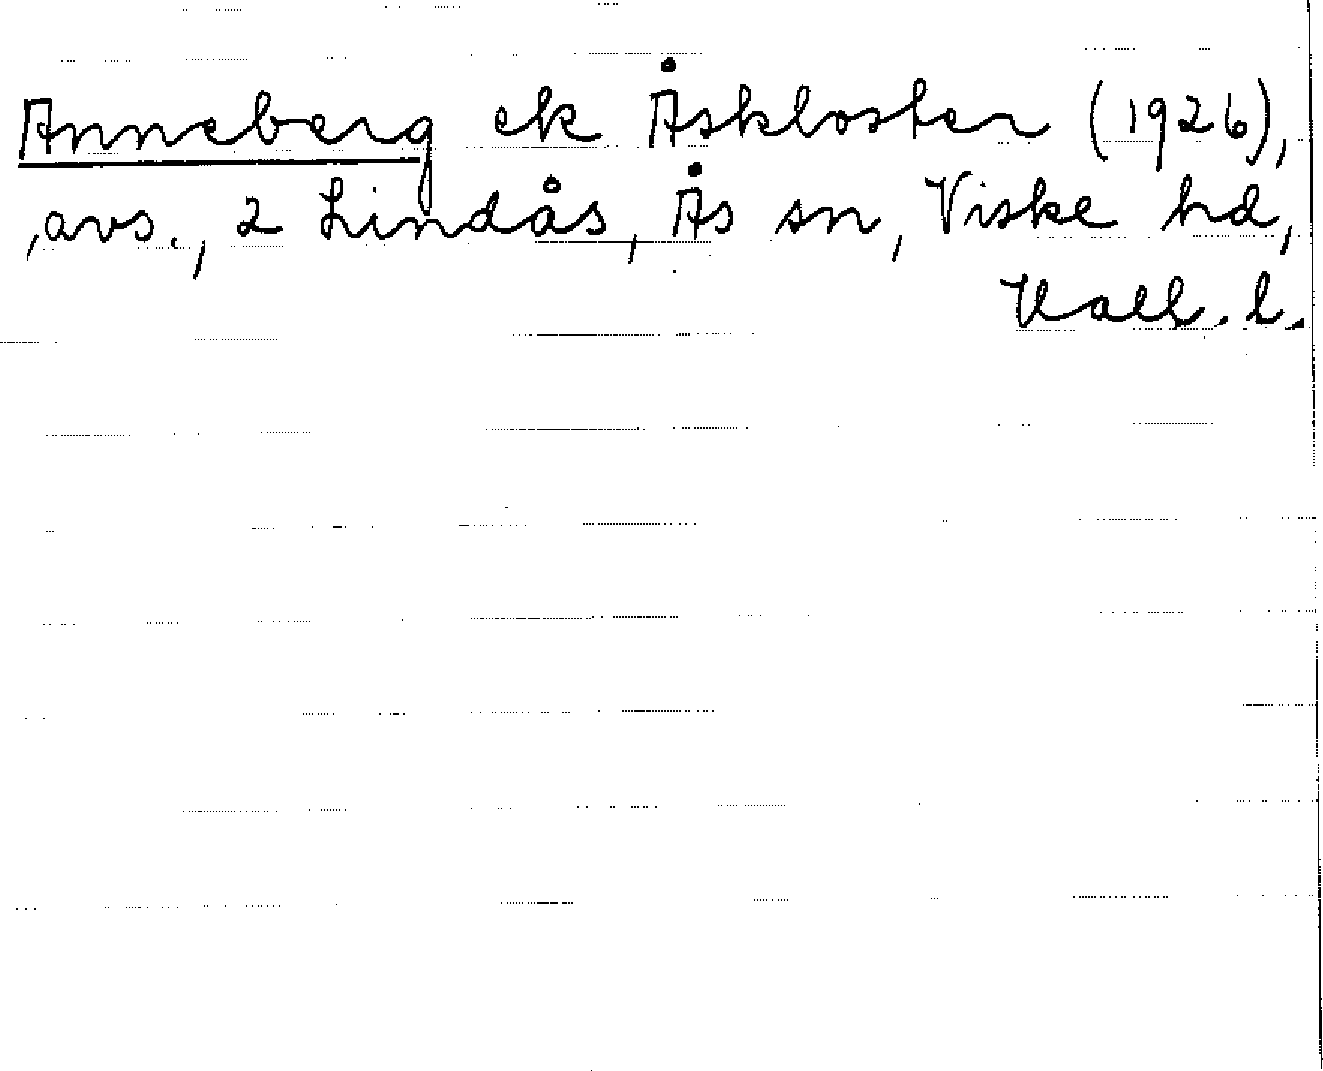 Anneberg ek Åskloster (1926),
, avs., 2 Lindås, Ås sn, Viske hd,
Hall. l.